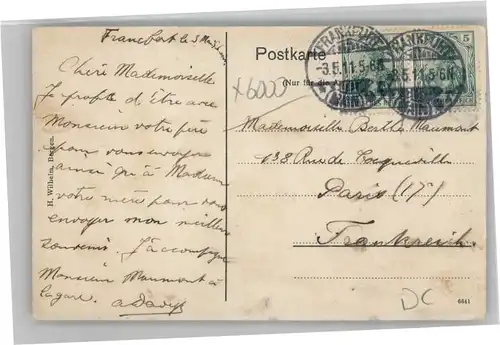 Francfort le 3 Mai
Postkarte
(Nur für die
FRANKFURT
-3.5.11.5-6N
(MAIN)
FRANKFURT
-3.5.11.5-6N
(MAIN)
5
x6000
Chère Mademoiselle
Je profite d'être avec
Monsieur votre père
pour vous envoyer
ainsi qu'à Madame
votre mère pour vous
envoyer mon meilleur
souvenir. J'accompagne
Monsieur Maumont à
la gare.
Mademoiselle Berthe Maumont
138 Rue de Tocqueville
Paris (17e)
Frankreich.
H. Wilhelm, Bergen.
DC
6641